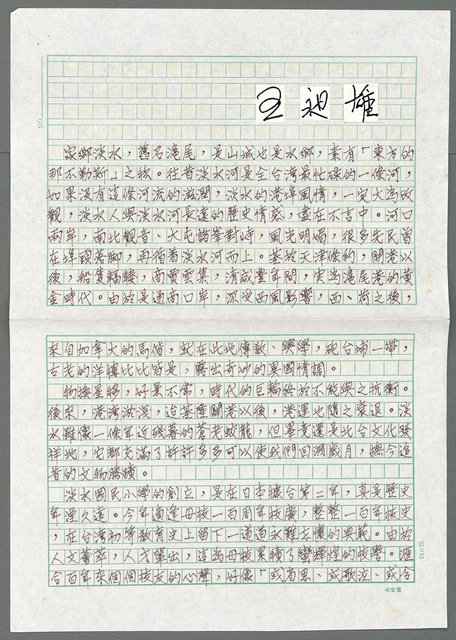 王昶雄
家鄉淡水，舊名滬尾，是山城也是水鄉，素有「東方的
那不勒斯」之稱。往昔淡水河是全台灣最代表的一條河，
如果沒有這條河流的滋潤，淡水的港埠風情，一定大為改
觀，淡水人與淡水河長遠的歷史情感，盡在不言中。河口
兩岸，南北觀音、大屯諸峯對峙，風光明媚，很多先民曾
在埠頭落腳，再循着淡水河而上。基於天津條約，開港以
後，船隻輻輳，商賈雲集，清咸豐年間，實為滬尾港的黃
金時代。由於是通商口岸，深受西風影響，西、荷之後，
來自加拿大的馬偕，就在此地傳教、興學，砲台埔一帶，
古老的洋樓比比皆是，釀出奇妙的異國情調。
物換星移，好景不常，時代的巨輪終於不能與之抗衡。
後來，港灣淤淺，迨基隆開港以後，港運也隨之衰退。淡
水雖像一條年近殘暮的蒼老蛟龍，但畢竟還是北台文化發
祥地，它都交滿了許許多多可以使我們回溯歲月，撫今追
昔的文物勝蹟。
淡水國民小學的創立，是在日本據台第二年，真是歷史
年湮久遠。今年適逢母校一百周年校慶，整整一百年校史
，在台灣初等教育史上留下一道道永難忘懷的典範。由於
人文薈萃，人才輩出，這為母校累積了蠻輝煌的校譽。滙
合百年來個個校友的心聲，好像「或省思、或歌泣、或含
24×25